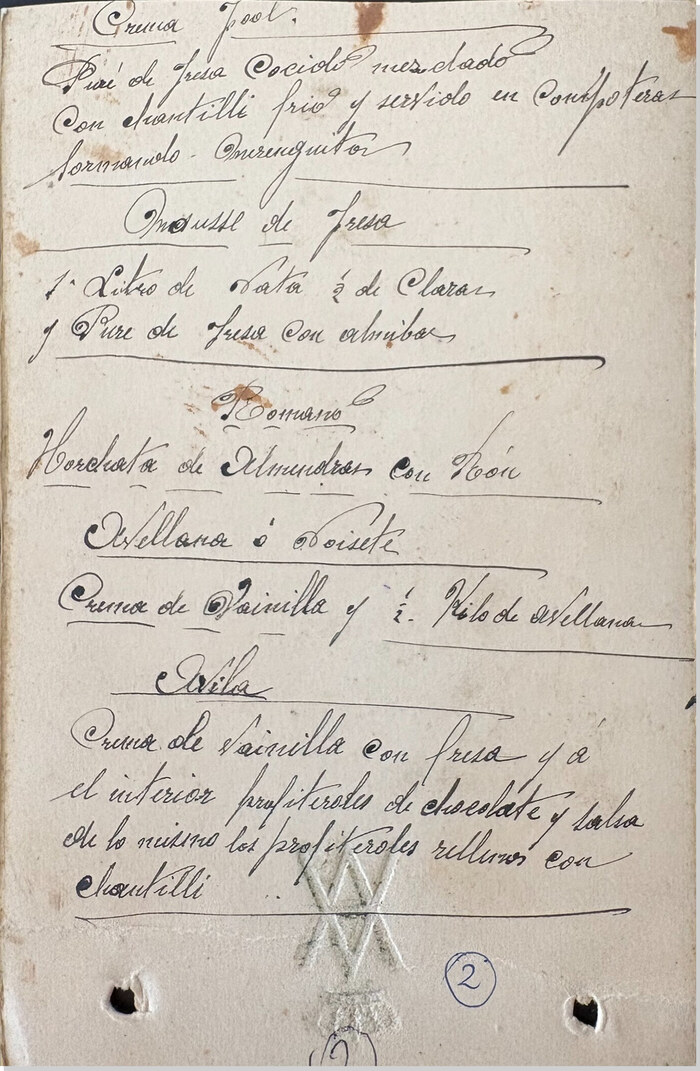 Crema Fool.
Puré de fresa Cocido mezclado
Con chantilli frio y servido en Compoteras
formando merenguitos
Mousse de Fresa
1. Litro de Nata ½ de Claras
y Pure de Fresa Con almibar
Romano
Horchata de Almendras con Rón
Avellana ó Noisete
Crema de Vainilla y ½. Kilo de avellanas
Avila
Crema de Vainilla con fresa y á
el interior profiteroles de chocolate y salsa
de lo mismo los profiteroles rellenos con
chantilli
2
2